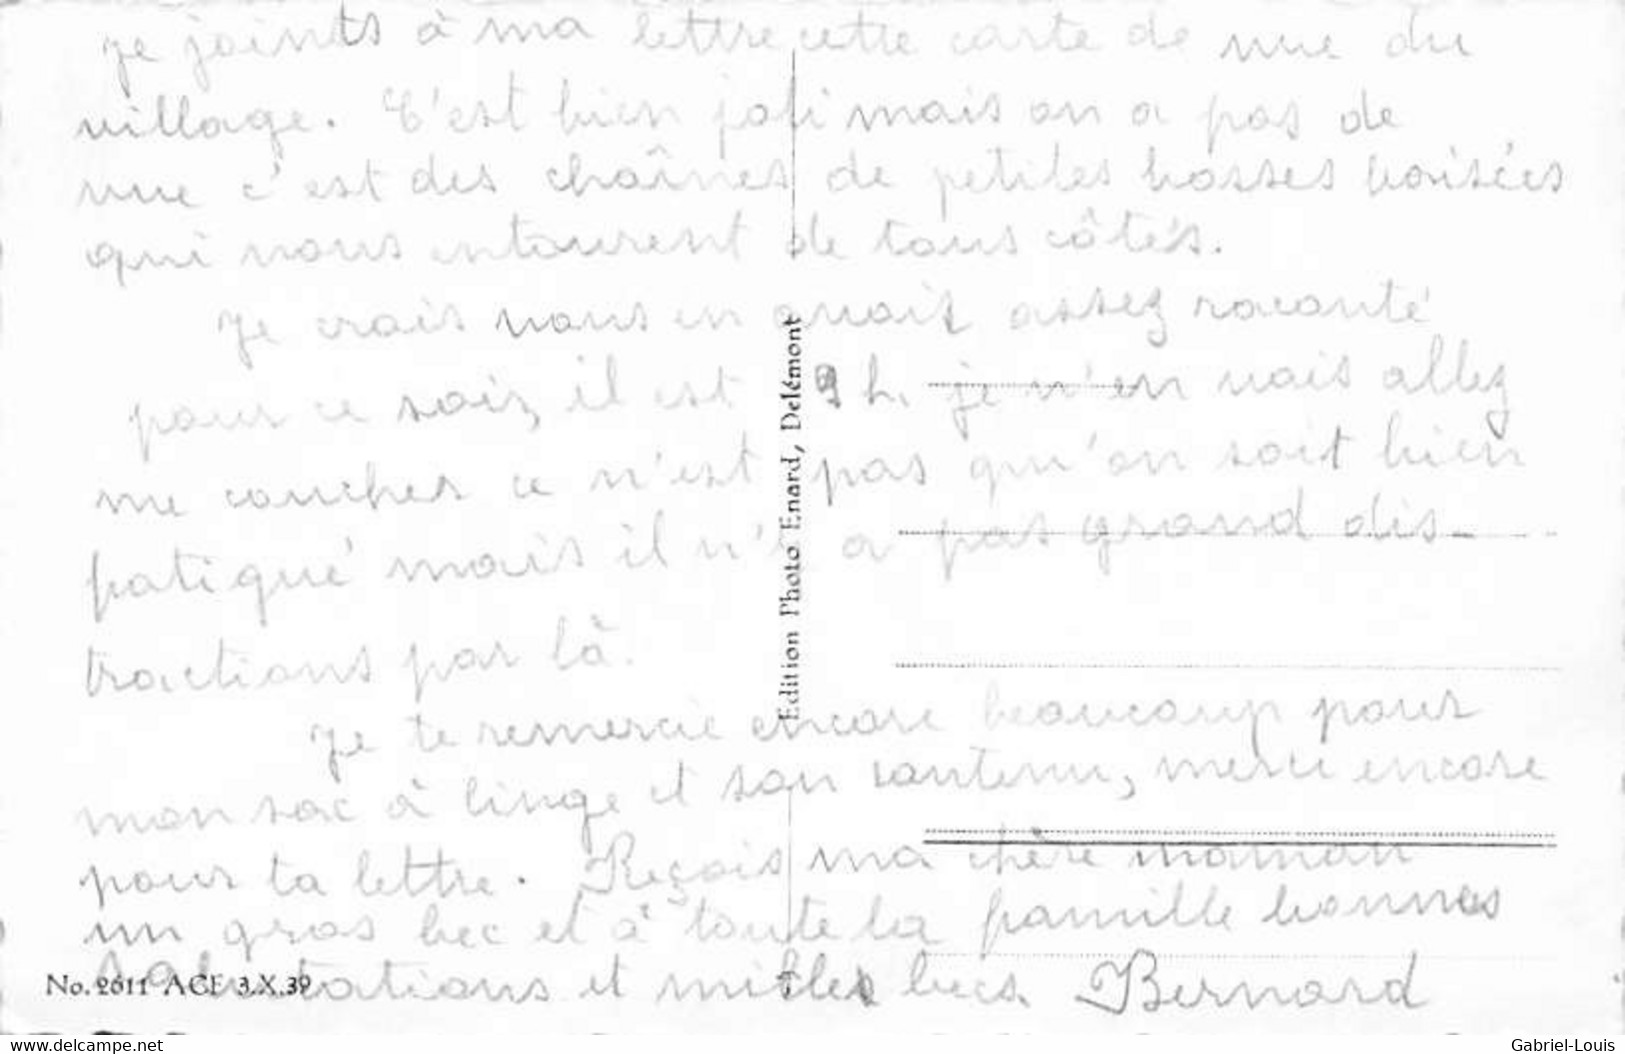 Je joints à ma lettre cette carte de vue du
village. C'est bien joli mais on a pas de
vue c'est des chaînes de petites bosses boisées
qui nous entourent de tous côtés.
Je crois vous en avoir assez raconté
pour ce soir, il est 9 h. je m'en vais allez
me coucher ce n'est pas qu'on soit bien
fatigué mais il n'y a pas grand dis-
tractions par là.
Je te remercie encore beaucoup pour
mon sac à linge et son contenu, merci encore
pour ta lettre. Reçois ma chère maman
un gros bec et à toute la famille bonnes
salutations et milles becs. Bernard
Edition Photo Enard, Delémont
No. 2611 ACF 3.X.39
www.delcampe.net
Gabriel-Louis